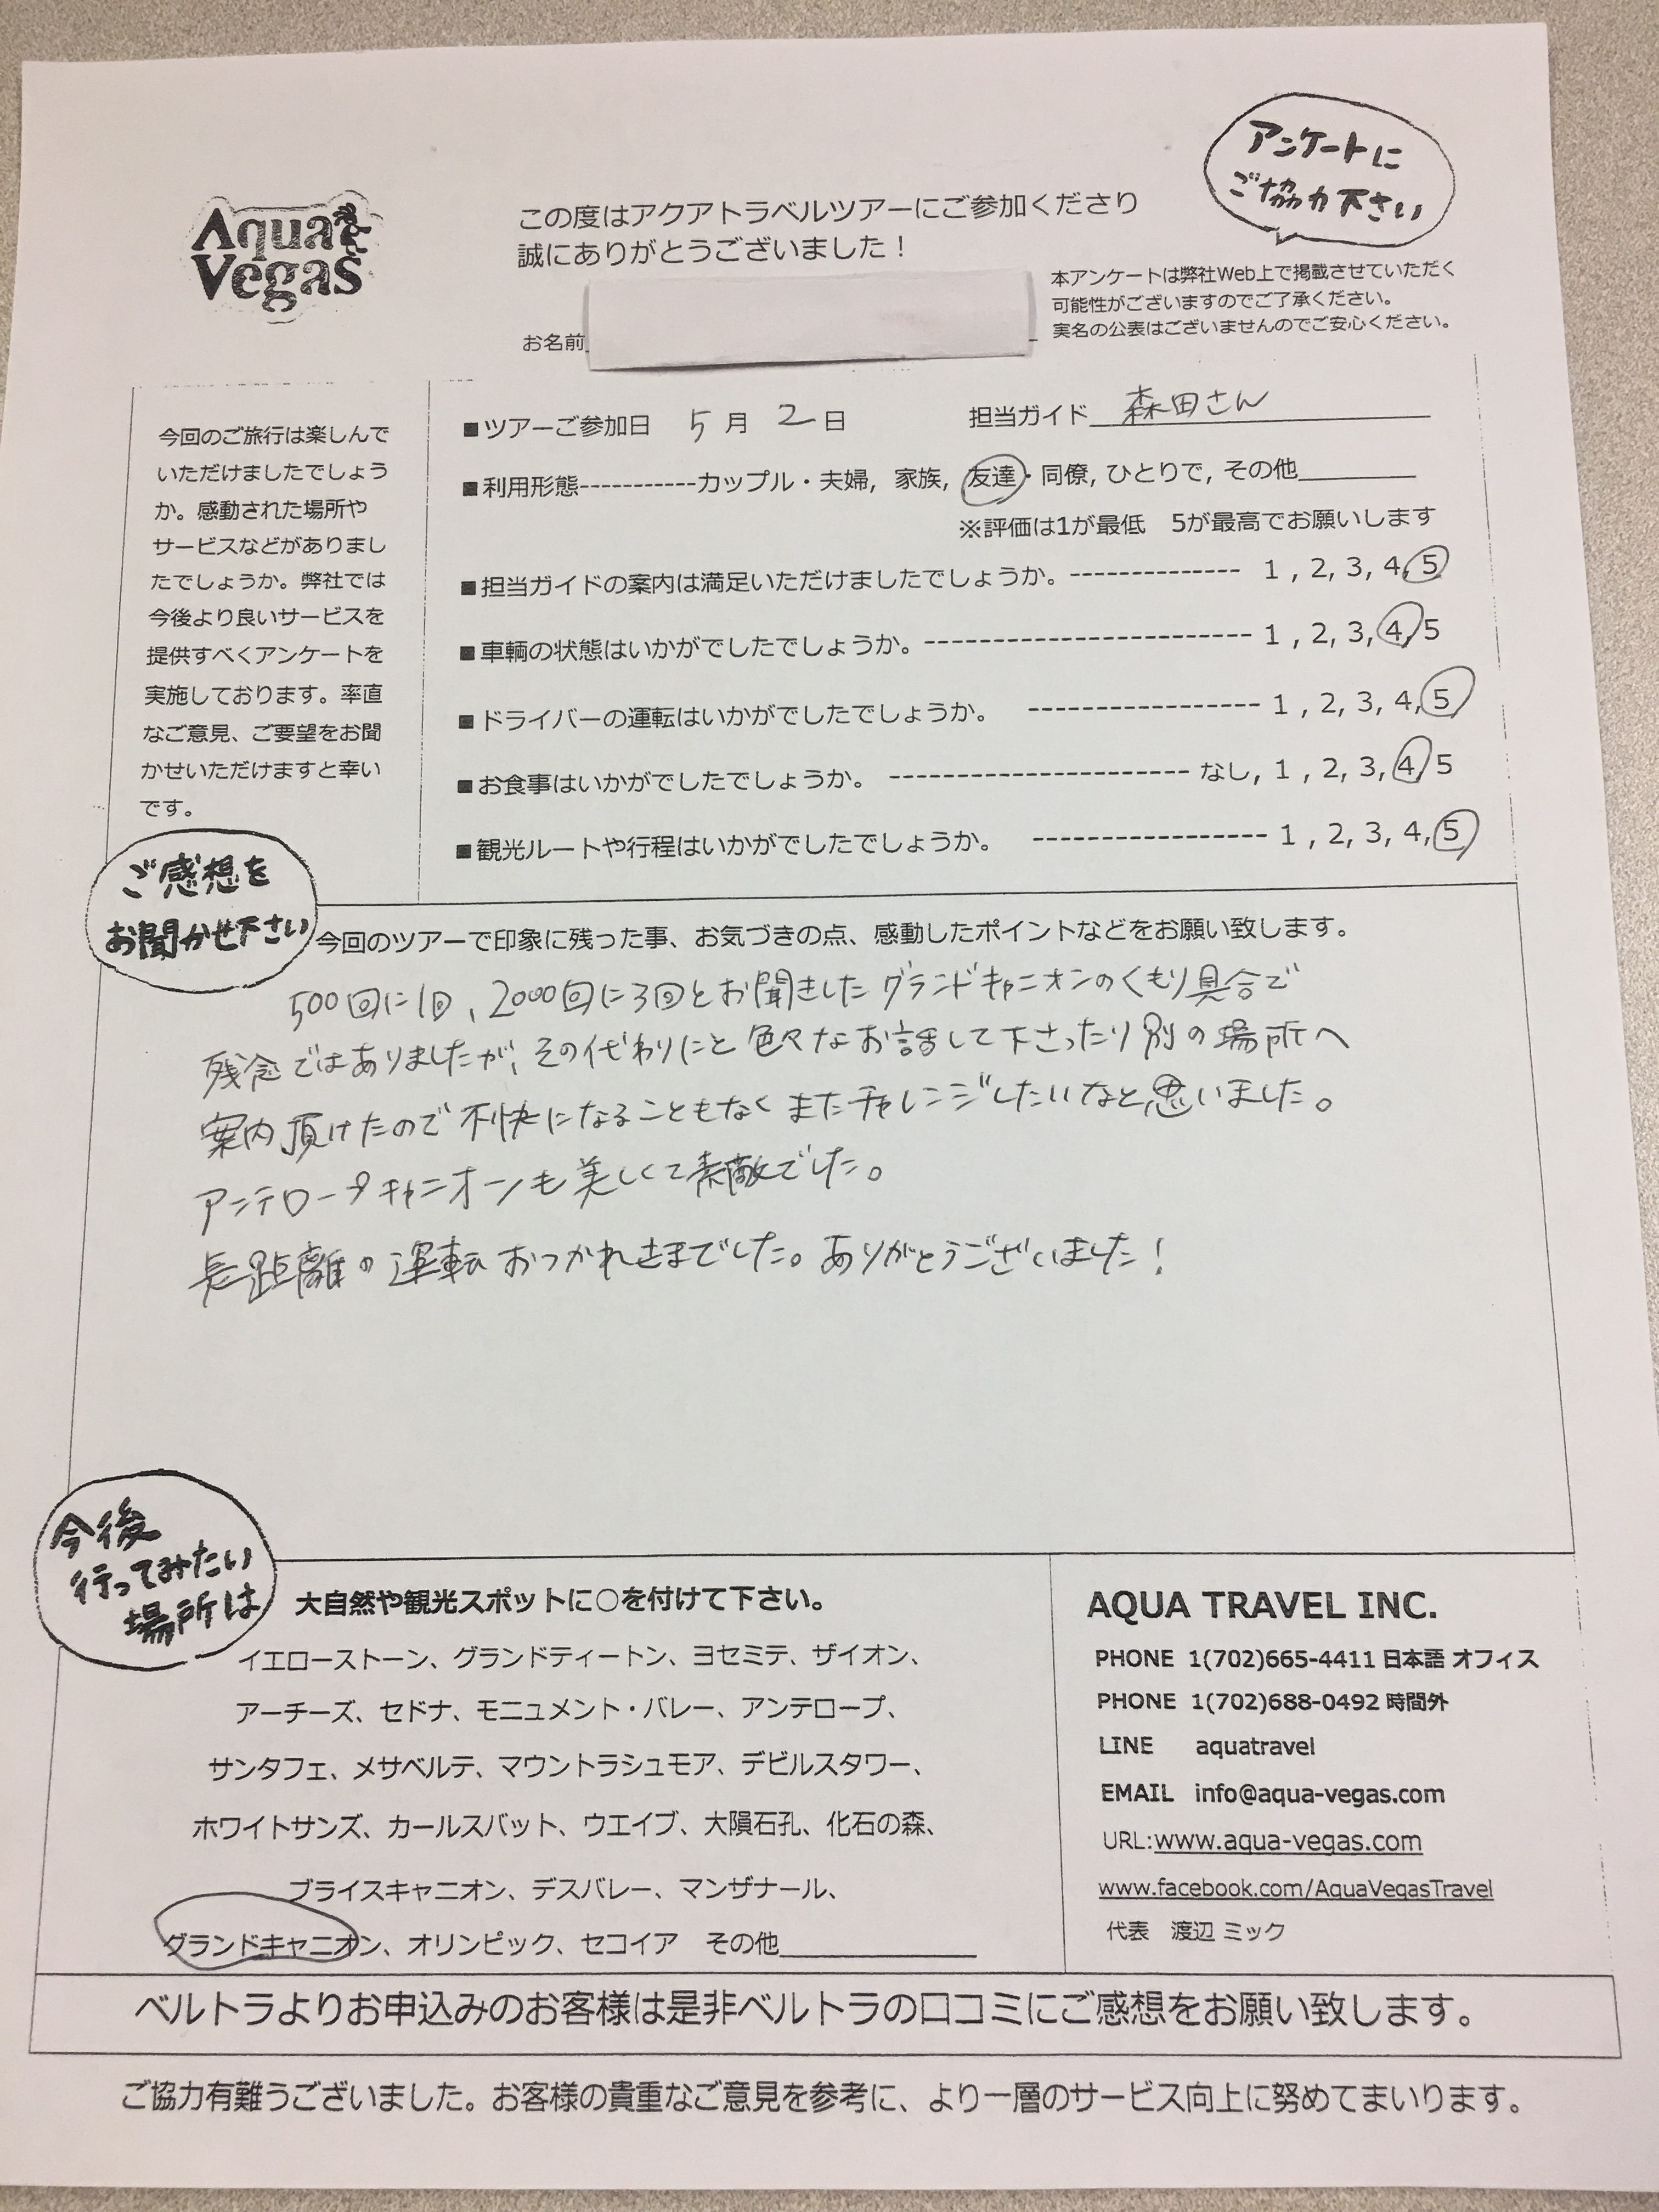 アンケートに
ご協力下さい
Aqua
Vegas
この度はアクアトラベルツアーにご参加くださり
誠にありがとうございました！
お名前
本アンケートは弊社Web上で掲載させていただく
可能性がございますのでご了承ください。
実名の公表はございませんのでご安心ください。
今回のご旅行は楽しんで
いただけましたでしょう
か。感動された場所や
サービスなどがありまし
たでしょうか。弊社では
今後より良いサービスを
提供すべくアンケートを
実施しております。率直
なご意見、ご要望をお聞
かせいただけますと幸い
です。
■ツアーご参加日 5月 2日 担当ガイド 森田さん
■利用形態-----------カップル・夫婦, 家族, 友達・同僚, ひとりで, その他
※評価は1が最低 5が最高でお願いします
■担当ガイドの案内は満足いただけましたでしょうか。-------------- 1 , 2, 3, 4, 5
■車輌の状態はいかがでしたでしょうか。--------------------------- 1 , 2, 3, 4, 5
■ドライバーの運転はいかがでしたでしょうか。 ----------------- 1 , 2, 3, 4, 5
■お食事はいかがでしたでしょうか。 ----------------------- なし, 1 , 2, 3, 4, 5
■観光ルートや行程はいかがでしたでしょうか。 ----------------- 1 , 2, 3, 4, 5
ご感想を
お聞かせ下さい
今回のツアーで印象に残った事、お気づきの点、感動したポイントなどをお願い致します。
500回に1回、2000回に3回とお聞きしたグランドキャニオンのくもり具合で
残念ではありましたが、その代わりにと色々なお話して下さったり別の場所へ
案内頂けたので不快になることもなくまたチャレンジしたいなと思いました。
アンテロープキャニオンも美しくて素敵でした。
長距離の運転おつかれさまでした。ありがとうございました！
今後
行ってみたい
場所は
大自然や観光スポットに○を付けて下さい。
イエローストーン、グランドティートン、ヨセミテ、ザイオン、
アーチーズ、セドナ、モニュメント・バレー、アンテロープ、
サンタフェ、メサベルテ、マウントラシュモア、デビルスタワー、
ホワイトサンズ、カールスバット、ウエイブ、大隕石孔、化石の森、
ブライスキャニオン、デスバレー、マンザナール、
グランドキャニオン、オリンピック、セコイア その他
AQUA TRAVEL INC.
PHONE 1(702)665-4411 日本語 オフィス
PHONE 1(702)688-0492 時間外
LINE aquatravel
EMAIL info@aqua-vegas.com
URL:www.aqua-vegas.com
www.facebook.com/AquaVegasTravel
代表 渡辺 ミック
ベルトラよりお申込みのお客様は是非ベルトラの口コミにご感想をお願い致します。
ご協力有難うございました。お客様の貴重なご意見を参考に、より一層のサービス向上に努めてまいります。